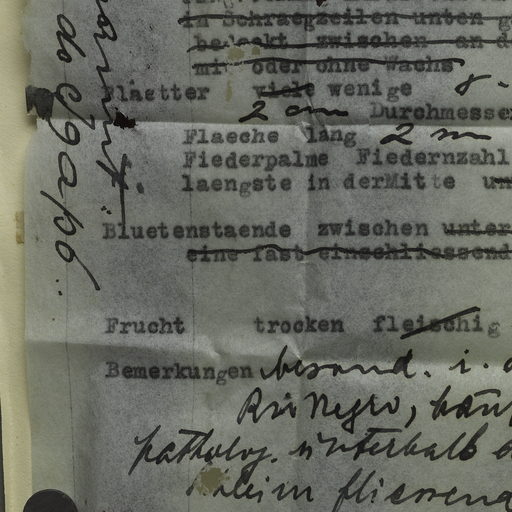 in Schraegzeilen unten
bedeckt zwischen an
mit oder ohne Wachs
Blaetter viele wenige 8-
2 cm Durchmesser
Flaeche lang 2 m
Fiederpalme Fiedernzahl
laengste in derMitte un
Bluetenstaende zwischen unter
eine fast einschliessend
Frucht trocken fleischig
Bemerkungen besond. i.
Rio Negro,
patholog. unterhalb